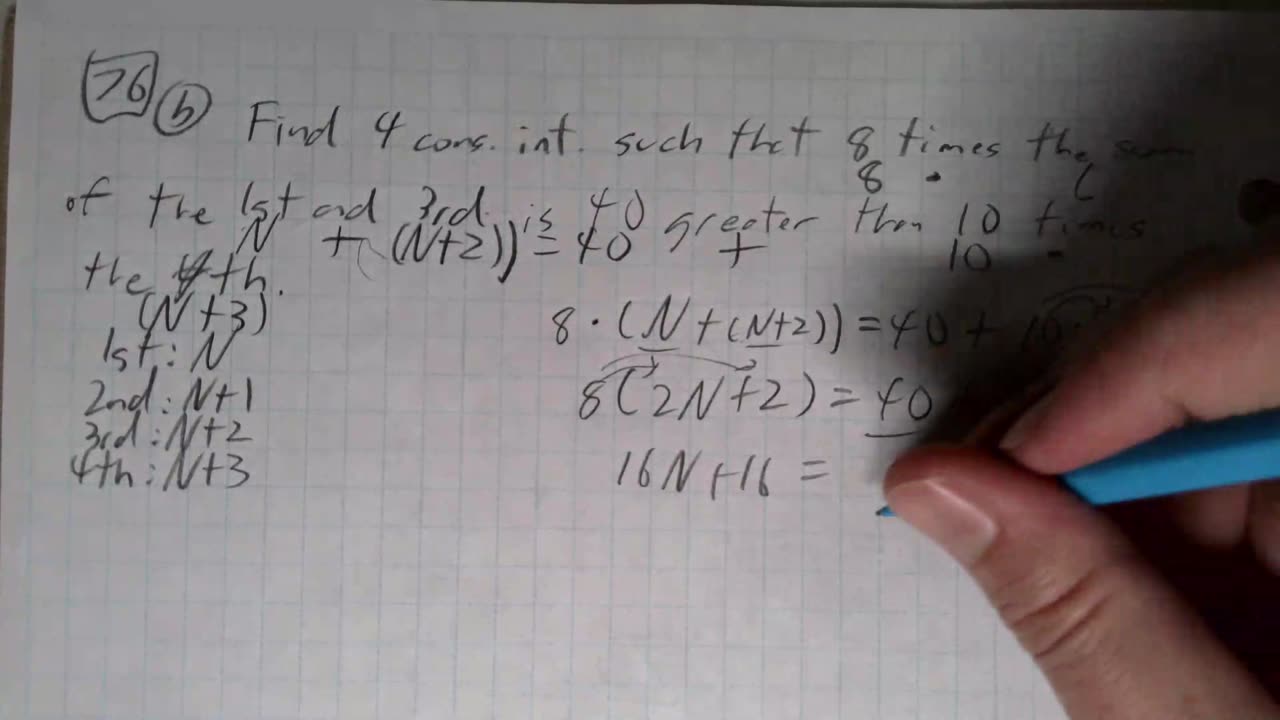 76 b Find 4 cons. int. such that 8 times the sum
8 · (
of the 1st and 3rd is 40 greater than 10 times
N + (N+2)) = 40 + 10 ·
the 4th.
(N+3)
1st: N
2nd: N+1
3rd: N+2
4th: N+3
8 · (N + (N+2)) = 40 + 10 ·
8(2N+2) = 40
16N+16 =